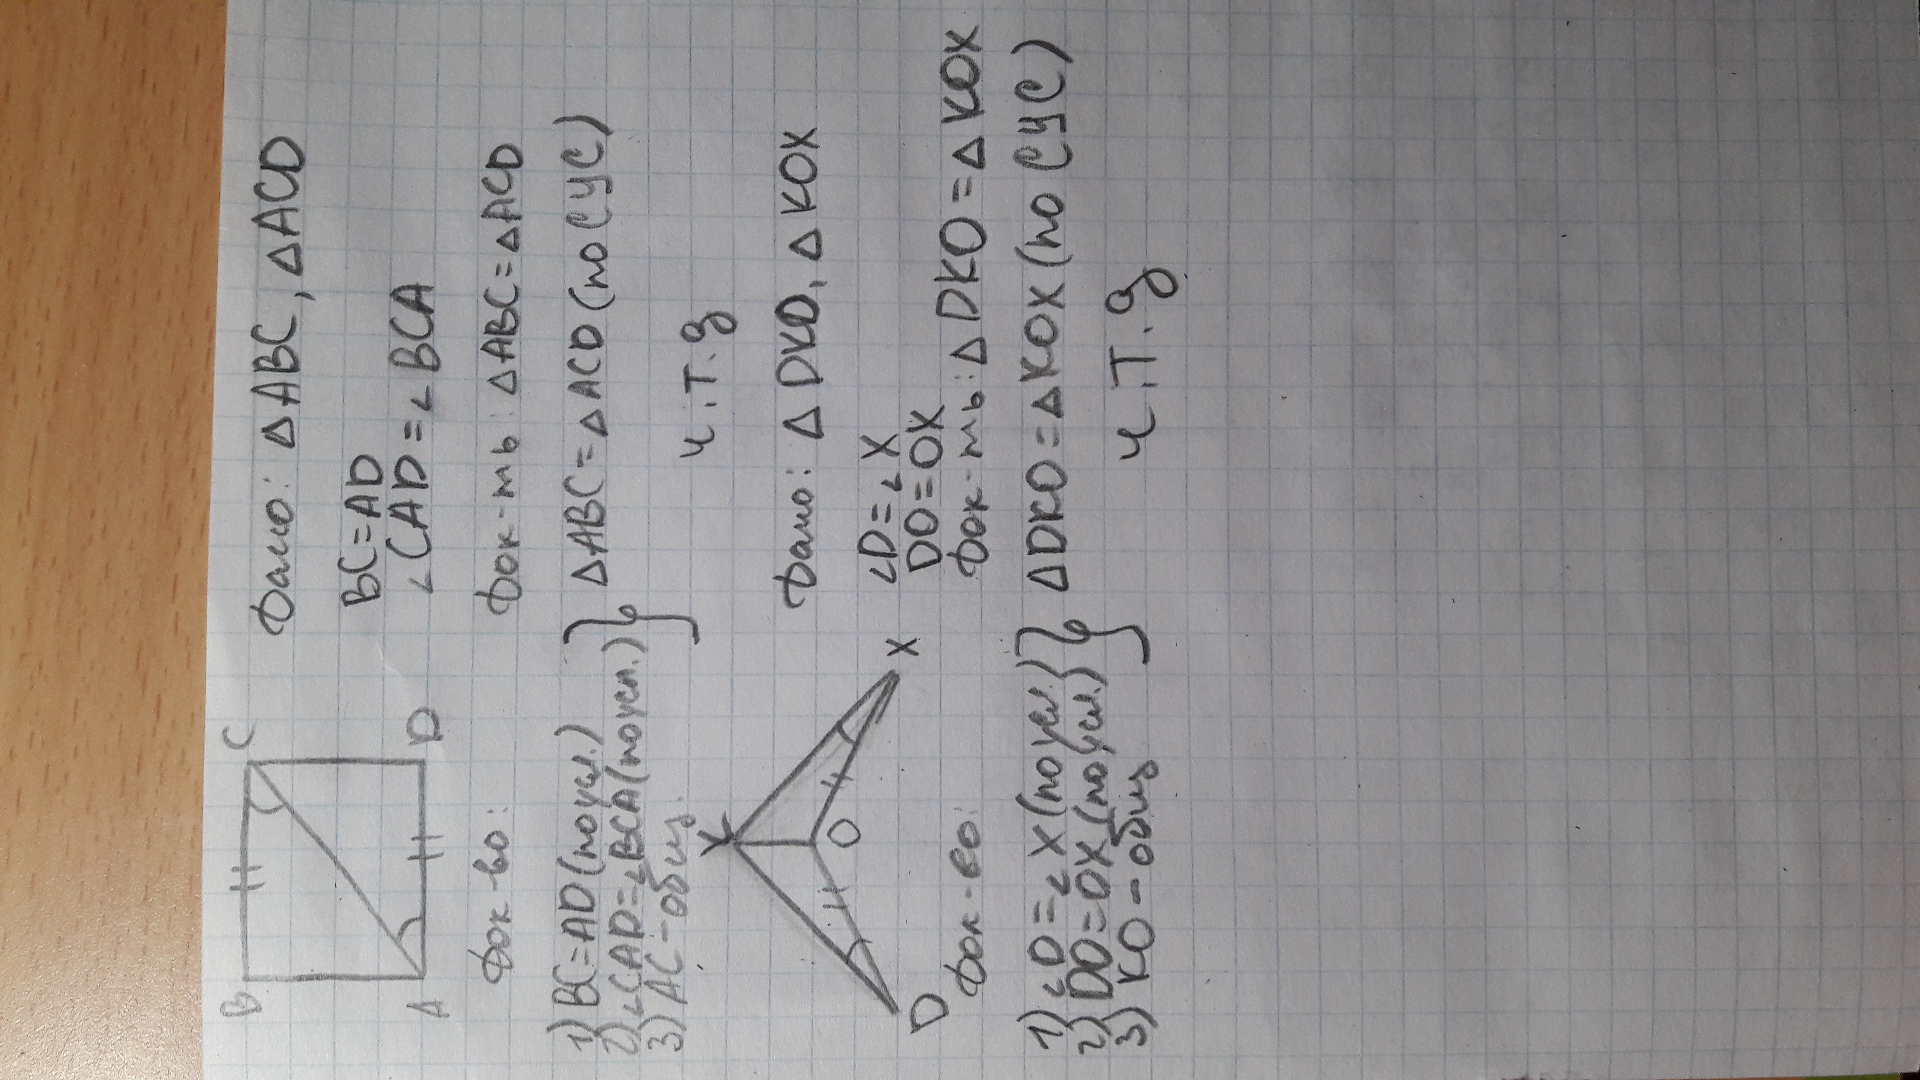 B C
A D
Дано: △ABC, △ACD
BC=AD
∠CAD=∠BCA
Док-ть: △ABC=△ACD
Док-во:
1) BC=AD (по усл.)
2) ∠CAD=∠BCA (по усл.)
3) AC-общ.
} △ABC=△ACD (по СУС)
ч.т.д
K
O
D X
Дано: △DKO, △KOX
∠D=∠X
DO=OX
Док-ть: △DKO=△KOX
Док-во:
1) ∠D=∠X (по усл.)
2) DO=OX (по усл.)
3) KO-общ
} △DKO=△KOX (по СУС)
ч.т.д